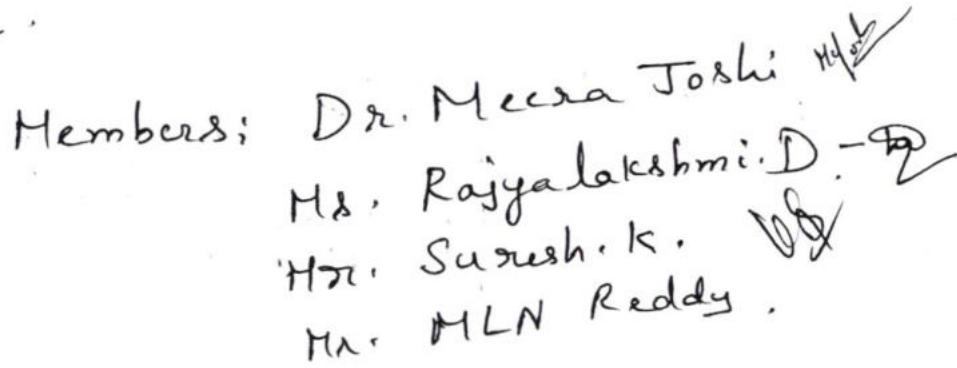 Members: Dr. Meera Joshi
Ms. Rajyalakshmi.D -
Mr. Suresh.K.
Mr. MLN Reddy.